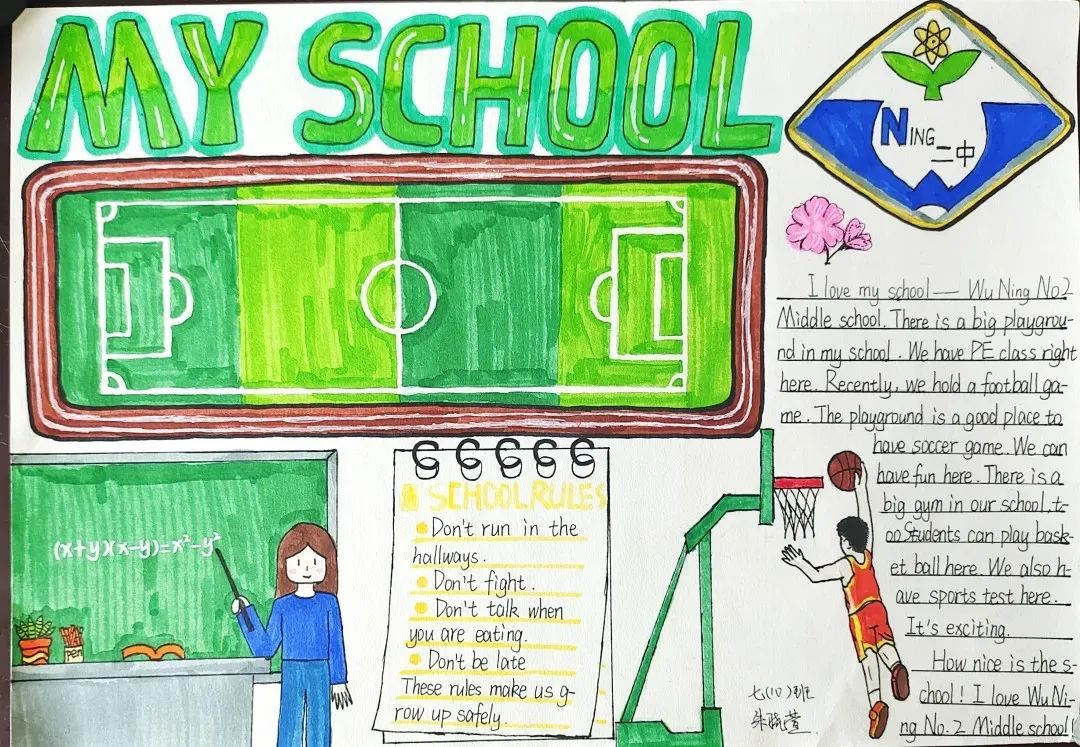 MY SCHOOL
NING
二中
I love my school — Wu Ning No.2
Middle school. There is a big playgrou-
nd in my school. We have PE class right
here. Recently, we hold a football ga-
me. The playground is a good place to
have soccer game. We can
have fun here. There is a
big gym in our school, t-
oo. Students can play bask-
et ball here. We also h-
ave sports test here.
It's exciting.
How nice is the s-
chool! I love Wu Ni-
ng No. 2 Middle school!
(x+y)(x-y)=x²-y²
pen
SCHOOL RULES
Don't run in the
hallways.
Don't fight.
Don't talk when
you are eating.
Don't be late
These rules make us g-
row up safely.
七(10)班
朱